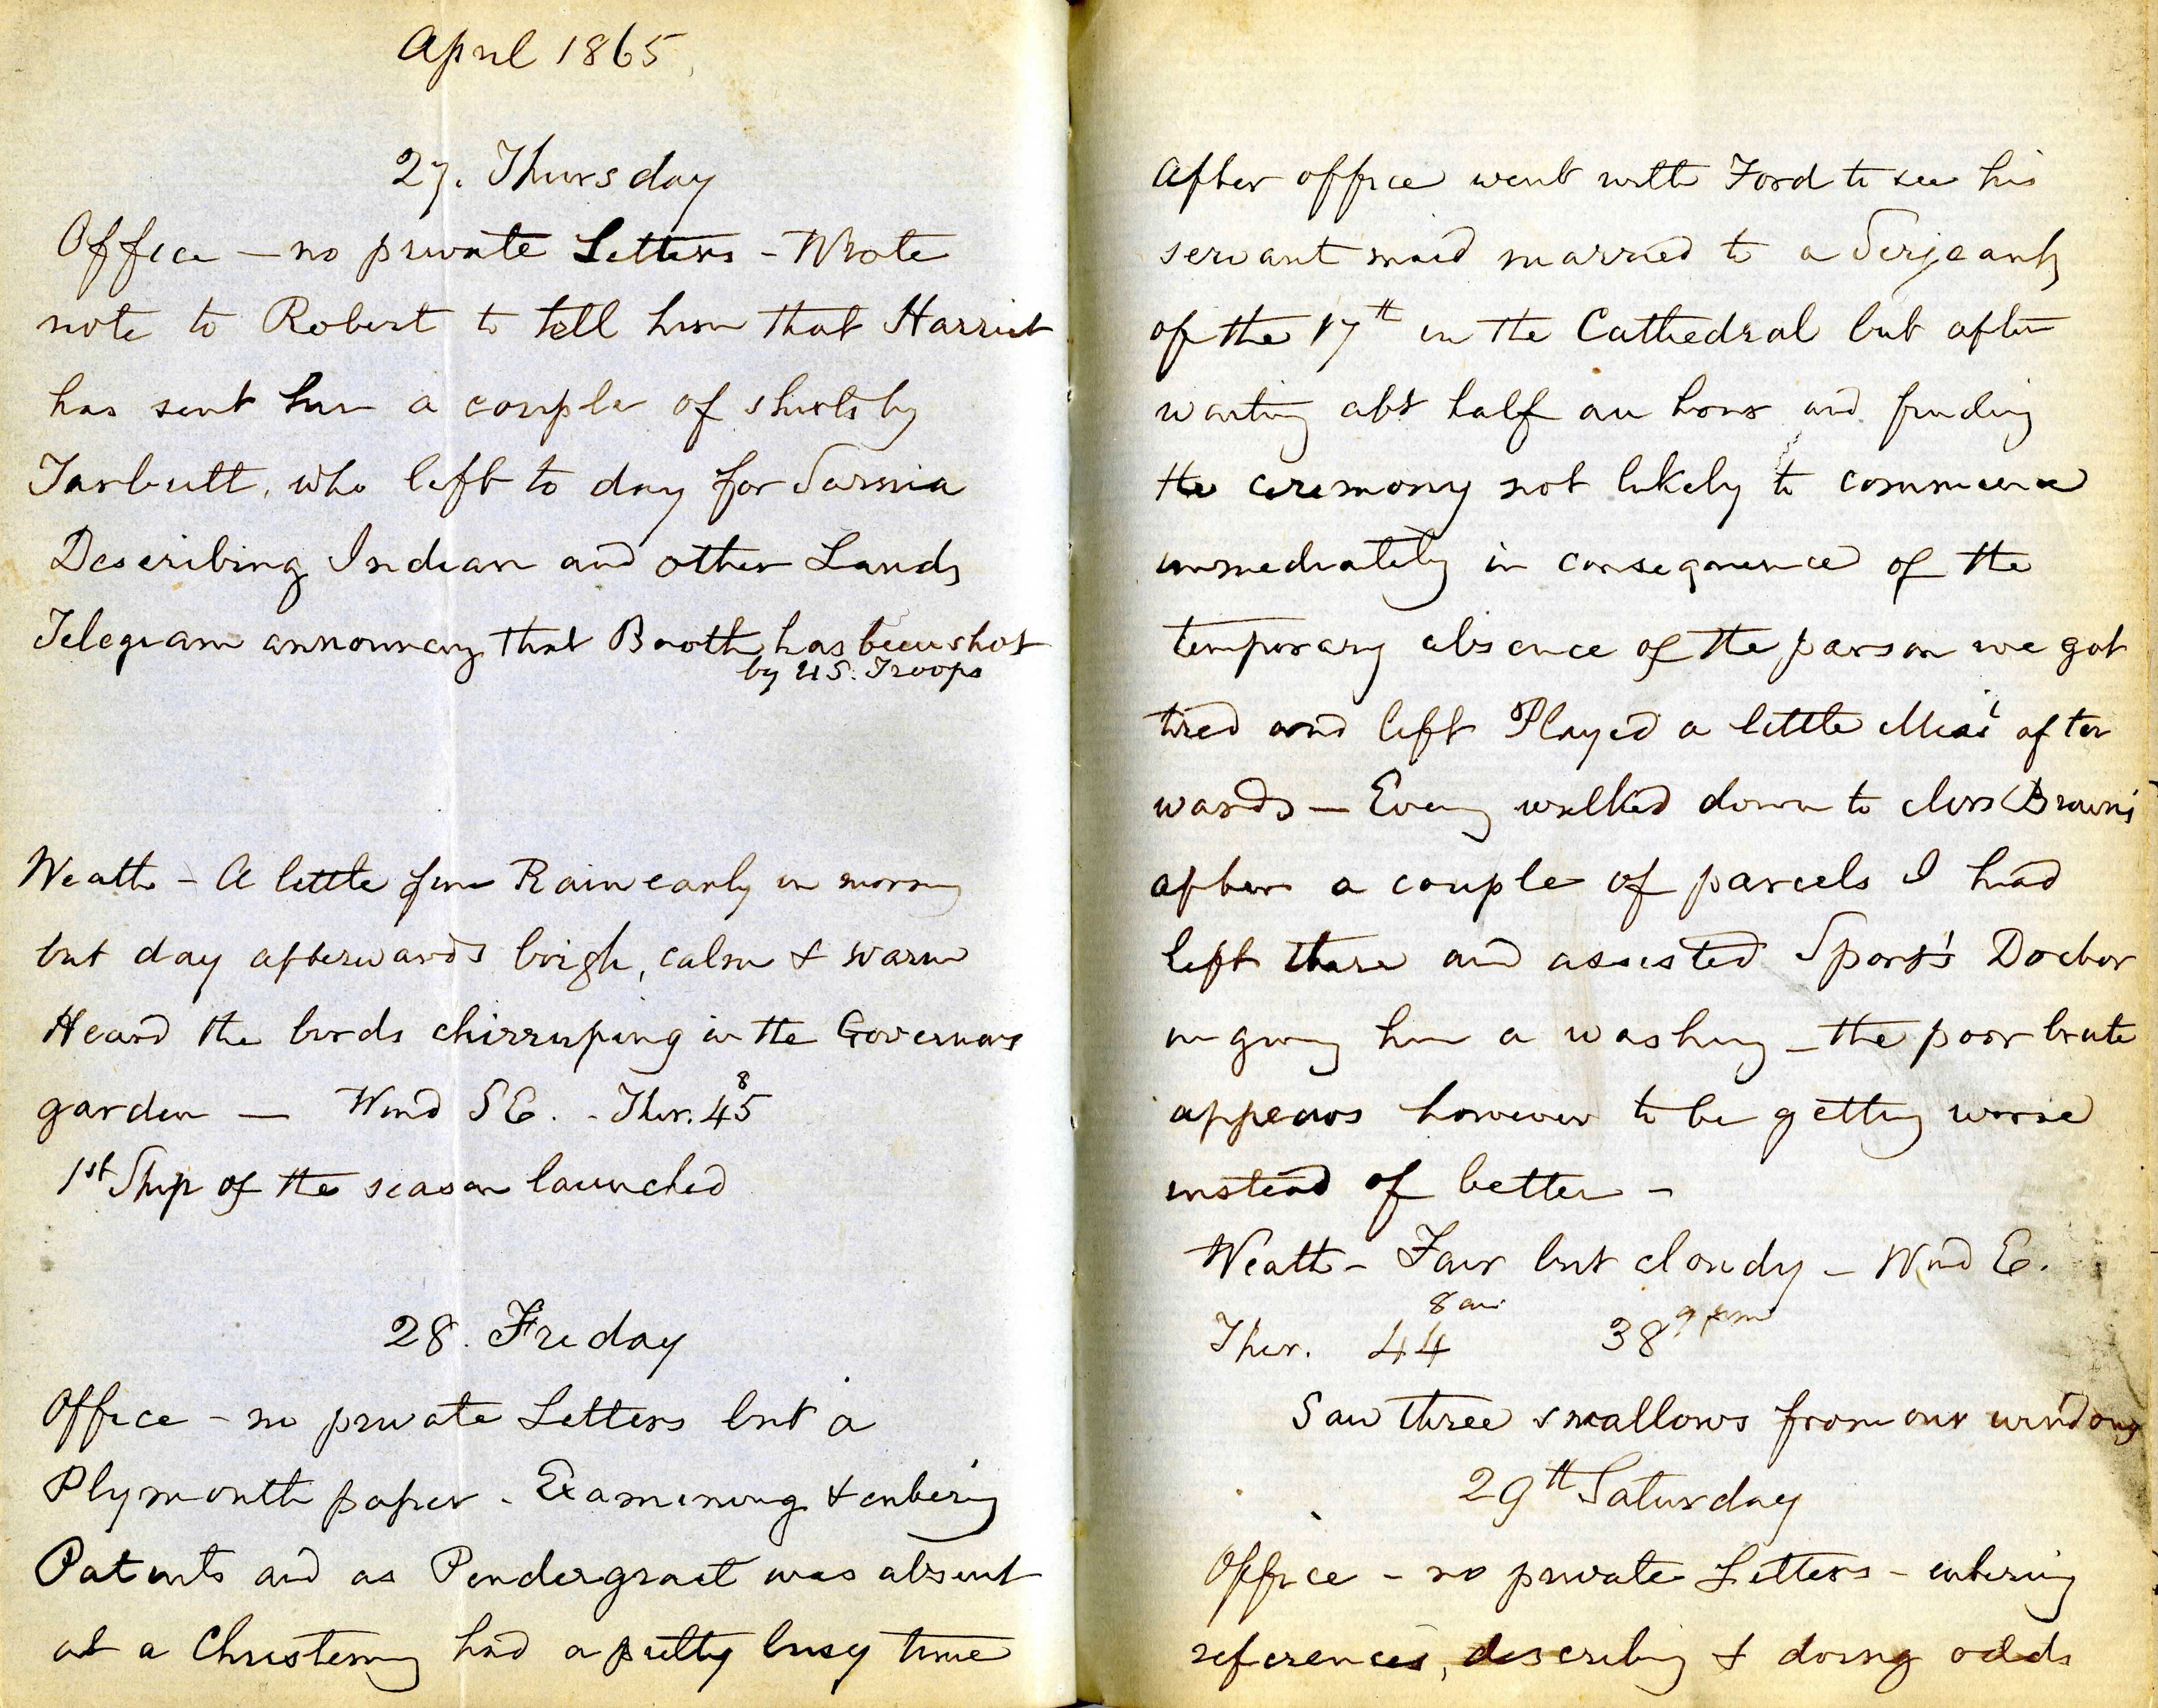 April 1865
27. Thursday
Office – no private Letters – Wrote
note to Robert to tell him that Harriet
has sent him a couple of shirts by
Tarbutt, who left to day for Sarnia
Describing Indian and other Lands
Telegram announcg that Booth has been shot
by U.S. Troops
Weathr – A little fine Rain early in morning
but day afterwards brigh, calm & warm
Heard the birds chirruping in the Governors
garden — Wind SE. – Ther. 45 8
1st Ship of the season launched
28. Friday
Office – no private Letters but a
Plymouth paper – Examining & entering
Patents and as Pendergrast was absent
at a Christening had a pretty busy time
After office went with Ford to see his
servant maid married to a Serjeant
of the 17th in the Cathedral but after
waiting abt half an hour and finding
the ceremony not likely to commence
immediately in consequence of the
temporary absence of the parson we got
tired and left Played a little after
wards — Eveng walked down to Miss Browns
after a couple of parcels I had
left there and assisted Sport's Doctor
in giving him a washing – the poor brute
appears however to be getting worse
instead of better –
Weath – Fair but cloudy – Wind E.
Ther. 44 8 am 38 9 pm
Saw three swallows from our windows
29th Saturday
Office – no private Letters – entering
references, describing & doing odds